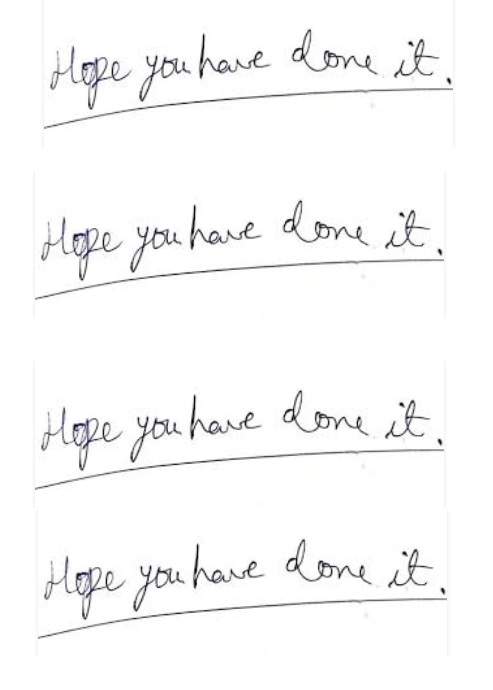 Hope you have done it.
Hope you have done it.
Hope you have done it.
Hope you have done it.